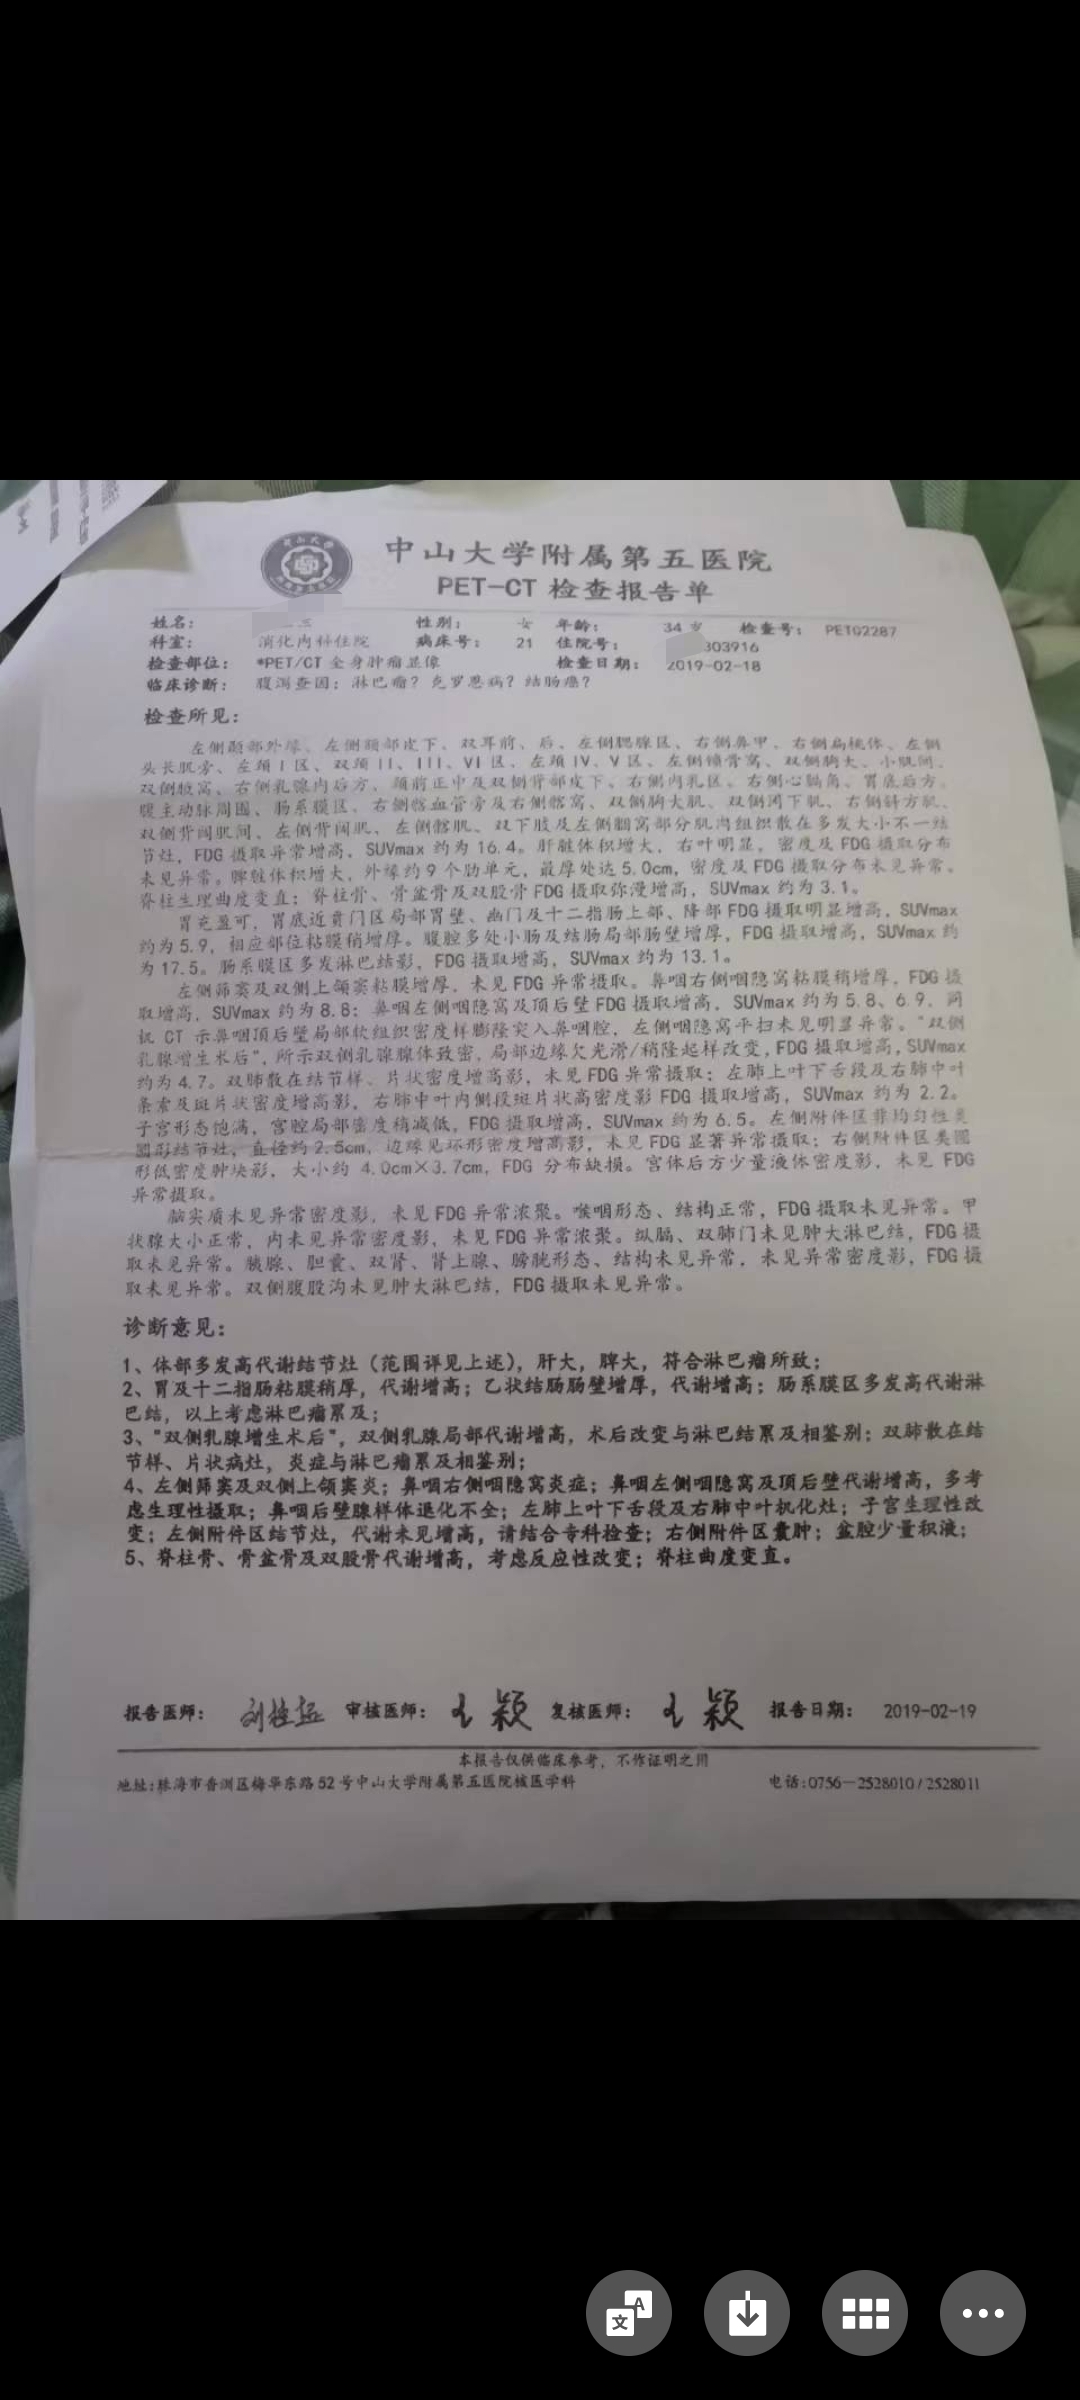 中山大学附属第五医院
PET-CT 检查报告单
姓名： 性别： 女 年龄： 34 岁 检查号： PET02287
科室： 消化内科住院 病床号： 21 住院号： 303916
检查部位： *PET/CT 全身肿瘤显像 检查日期： 2019-02-18
临床诊断： 腹泻查因：淋巴瘤？克罗恩病？结肠癌？
检查所见：
左侧颞部外缘、左侧颞部皮下、双耳前、后、左侧腮腺区、右侧鼻甲、右侧扁桃体、左侧
头长肌旁、左颈 I 区、双颈 II、III、VI 区、左颈 IV、V 区、左侧锁骨窝、双侧胸大、小肌间、
双侧腋窝、右侧乳腺内后方、颈前正中及双侧背部皮下、右侧内乳区、右侧心膈角、胃底后方、
腹主动脉周围、肠系膜区、右侧髂血管旁及右侧髂窝、双侧胸大肌、双侧冈下肌、右侧斜方肌、
双侧背阔肌间、左侧背阔肌、左侧髂肌、双下肢及左侧腘窝部分肌肉组织散在多发大小不一结
节灶，FDG 摄取异常增高，SUVmax 约为 16.4。肝脏体积增大，右叶明显，密度及 FDG 摄取分布
未见异常。脾脏体积增大，外缘约 9 个肋单元，最厚处达 5.0cm，密度及 FDG 摄取分布未见异常。
脊柱生理曲度变直；脊柱骨、骨盆骨及双股骨 FDG 摄取弥漫增高，SUVmax 约为 3.1。
胃充盈可，胃底近贲门区局部胃壁、幽门及十二指肠上部、降部 FDG 摄取明显增高，SUVmax
约为 5.9，相应部位粘膜稍增厚。腹腔多处小肠及结肠局部肠壁增厚，FDG 摄取增高，SUVmax 约
为 17.5。肠系膜区多发淋巴结影，FDG 摄取增高，SUVmax 约为 13.1。
左侧筛窦及双侧上颌窦粘膜增厚，未见 FDG 异常摄取。鼻咽右侧咽隐窝粘膜稍增厚，FDG 摄
取增高，SUVmax 约为 8.8；鼻咽左侧咽隐窝及顶后壁 FDG 摄取增高，SUVmax 约为 5.8、6.9，同
机 CT 示鼻咽顶后壁局部软组织密度样膨隆突入鼻咽腔，左侧咽隐窝平扫未见明显异常。“双侧
乳腺增生术后”，所示双侧乳腺腺体致密，局部边缘欠光滑/稍隆起样改变，FDG 摄取增高，SUVmax
约为 4.7。双肺散在结节样、片状密度增高影，未见 FDG 异常摄取；左肺上叶下舌段及右肺中叶
条索及斑片状密度增高影，右肺中叶内侧段斑片状高密度影 FDG 摄取增高，SUVmax 约为 2.2。
子宫形态饱满，宫腔局部密度稍减低，FDG 摄取增高，SUVmax 约为 6.5。左侧附件区非均匀性类
圆形结节灶，直径约 2.5cm，边缘见环形密度增高影，未见 FDG 显著异常摄取；右侧附件区类圆
形低密度肿块影，大小约 4.0cm×3.7cm，FDG 分布缺损。宫体后方少量液体密度影，未见 FDG
异常摄取。
脑实质未见异常密度影，未见 FDG 异常浓聚。喉咽形态、结构正常，FDG 摄取未见异常。甲
状腺大小正常，内未见异常密度影，未见 FDG 异常浓聚。纵膈、双肺门未见肿大淋巴结，FDG 摄
取未见异常。胰腺、胆囊、双肾、肾上腺、膀胱形态、结构未见异常，未见异常密度影，FDG 摄
取未见异常。双侧腹股沟未见肿大淋巴结，FDG 摄取未见异常。
诊断意见：
1、体部多发高代谢结节灶（范围详见上述），肝大，脾大，符合淋巴瘤所致；
2、胃及十二指肠粘膜稍厚，代谢增高；乙状结肠肠壁增厚，代谢增高；肠系膜区多发高代谢淋
巴结，以上考虑淋巴瘤累及；
3、"双侧乳腺增生术后"，双侧乳腺局部代谢增高，术后改变与淋巴结累及相鉴别；双肺散在结
节样、片状病灶，炎症与淋巴瘤累及相鉴别；
4、左侧筛窦及双侧上颌窦炎；鼻咽右侧咽隐窝炎症；鼻咽左侧咽隐窝及顶后壁代谢增高，多考
虑生理性摄取；鼻咽后壁腺样体退化不全；左肺上叶下舌段及右肺中叶机化灶；子宫生理性改
变；左侧附件区结节灶，代谢未见增高，请结合专科检查；右侧附件区囊肿；盆腔少量积液；
5、脊柱骨、骨盆骨及双股骨代谢增高，考虑反应性改变；脊柱曲度变直。
报告医师： 审核医师： 王颖 复核医师： 王颖 报告日期： 2019-02-19
本报告仅供临床参考，不作证明之用
地址：珠海市香洲区梅华东路 52 号中山大学附属第五医院核医学科 电话：0756-2528010/2528011